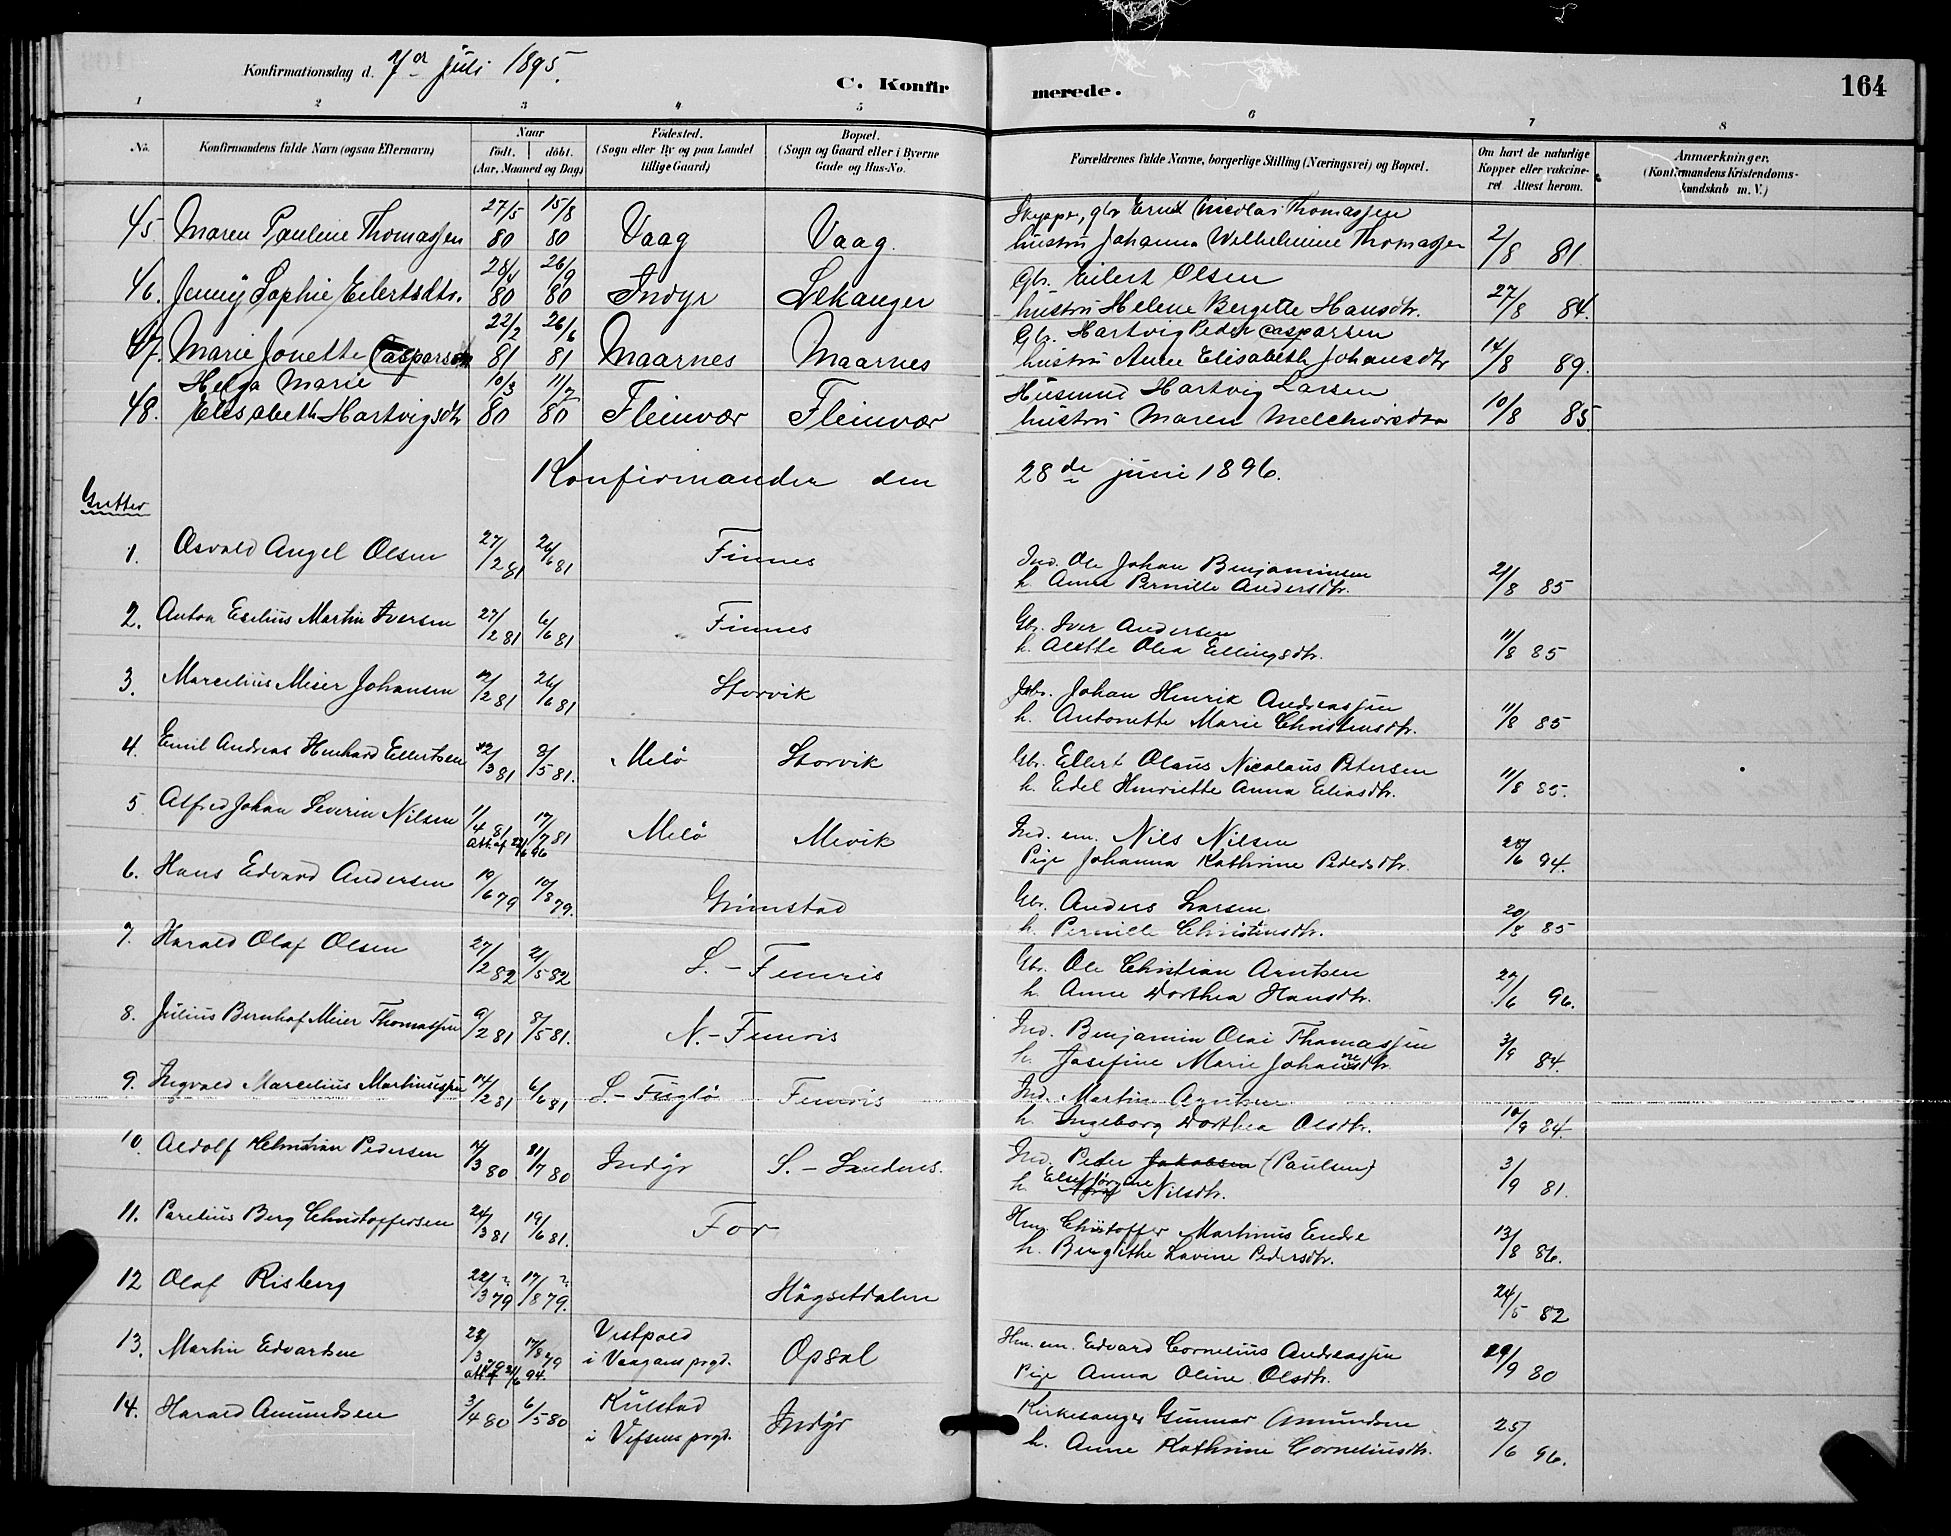 Konfirmationsdag d. 7de juli 1895.
C. Konfirmerede.
164
1 2 3 4 5 6 7 8
No.
Konfirmandens fulde Navn (ogsaa Efternavn)
Naar
født. døbt.
(Aar, Maaned og Dag)
Fødested.
(Sogn eller By og paa Landet
tillige Gaard)
Bopæl.
(Sogn og Gaard eller i Byerne
Gade og Hus-No.
Forældrenes fulde Navne, borgerlige Stilling (Næringsvei) og Bopæl.
Om havt de naturlige
Kopper eller vakcine-
ret Attest herom.
Anmærkninger.
(Konfirmandens Kristendoms-
kundskab m. V.)
45. Maren Pauline Thomassen 27/5 80 15/8 80 Vaag Vaag. Skyppr, gbr Ernst Nicolai Thomassen
hustru Johanna Wilhelmine Thomassen 2/8 81
46. Jenny Sophie Eilertsdtr. 28/4 80 26/9 80 Indyr Selkanger Gbr. Eilert Olsen
hustru Helene Bergette Hansdtr. 27/8 84.
47. Marie Jonette Casparsen 22/2 81 26/6 81 Maarnes Maarnes Gbr. Hartvig Peder Casparsen
hustru Anne Elisabeth Johansdtr 14/8 89.
48. Helga Marie
Elisabeth Hartvigsdtr 10/3 80 11/7 80 Fleinvær Fleinvær Husmand Hartvig Larsen
hustru Maren Melchiorsdtr 10/8 85.
Konfirmander den 28de juni 1896.
Gutter
1. Osvald Angel Olsen 27/2 81 26/6 81 Finnes Ind. Ole Johan Benjaminsen
h. Anna Pernille Andersdtr. 21/8 85
2. Anton Eselius Martin Iversen 27/2 81 6/6 81 Finnes Gbr. Iver Andersen
h. Alette Olea Ellingsdtr. 11/8 85
3. Marcelius Meier Johansen 12/2 81 26/6 81 Storvik Gbr. Johan Henrik Andreassen
h. Antonette Marie Christensdtr. 11/8 85
4. Emil Andreas Ellertsen 12/3 81 8/5 81. Melø Storvik Gbr. Ellert Olaus Nicolaus Petersen
h. Edel Henriette Anna Eliasdtr. 11/8 85.
5 Alfred Johan Severin Nilsen 1/4 81 17/7 81 Melø Mevik Ind. em. Nils Nilsen
Att. af 22/6 96 Pige Johanna Kathrine Pedersdtr. 20/6 94.
6. Hans Edvard Andersen 19/6 79 10/8 79. Grimstad Gbr. Anders Larsen
h. Pernille Christensdtr. 20/8 85
7. Harald Olaf Olsen 27/2 82 21/5 82 S.-Femris Gbr. Ole Christian Arntsen
h. Anne Dorthea Hansdtr. 27/6 96.
8. Julius Bernhof Meier Thomassen 9/2 81 8/5 81. N.-Femris Ind. Benjamin Olai Thomassen
h. Josefine Marie Johannesdtr. 3/9 84.
9. Ingvald Marcelius Martinussen 14/2 81 6/6 81 S.-Fuglø Femris Ind. Martin Arntsen
h. Ingeborg Dorthea Olsdtr. 10/9 84.
10. Aldolf Christian Pedersen 14/3 80 31/7 80 Indyr S.-Sandnes. Ind. Peder Jakobsen (Paulsen)
h. Else Jørgine Nilsdtr. 3/9 81.
11. Parelius Berg Christoffersen 24/3 81 19/6 81. For Hm. Christoffer Martinus Endre
h. Bergithe Lavine Pedersdtr. 13/8 86.
12 Olaf Risberg 22/3 79? 17/8 79? Høgsetdalen 24/5 82
13. Martin Edvardsen 28/3 79 17/8 79 Vestpold
i Vaagans prgd. Opsal Hm. em. Edvard Cornelius Andreassen
Att. af 21/6 94. Pige Anna Oline Olsdtr. 29/9 80
14. Harald Amundsen 3/4 80 6/5 80 Kulstad
i Vefsens prgd. Indyr Kirkesanger Gunnar Amundsen
h. Anne Kathrine Corneliusdtr. 25/6 96.